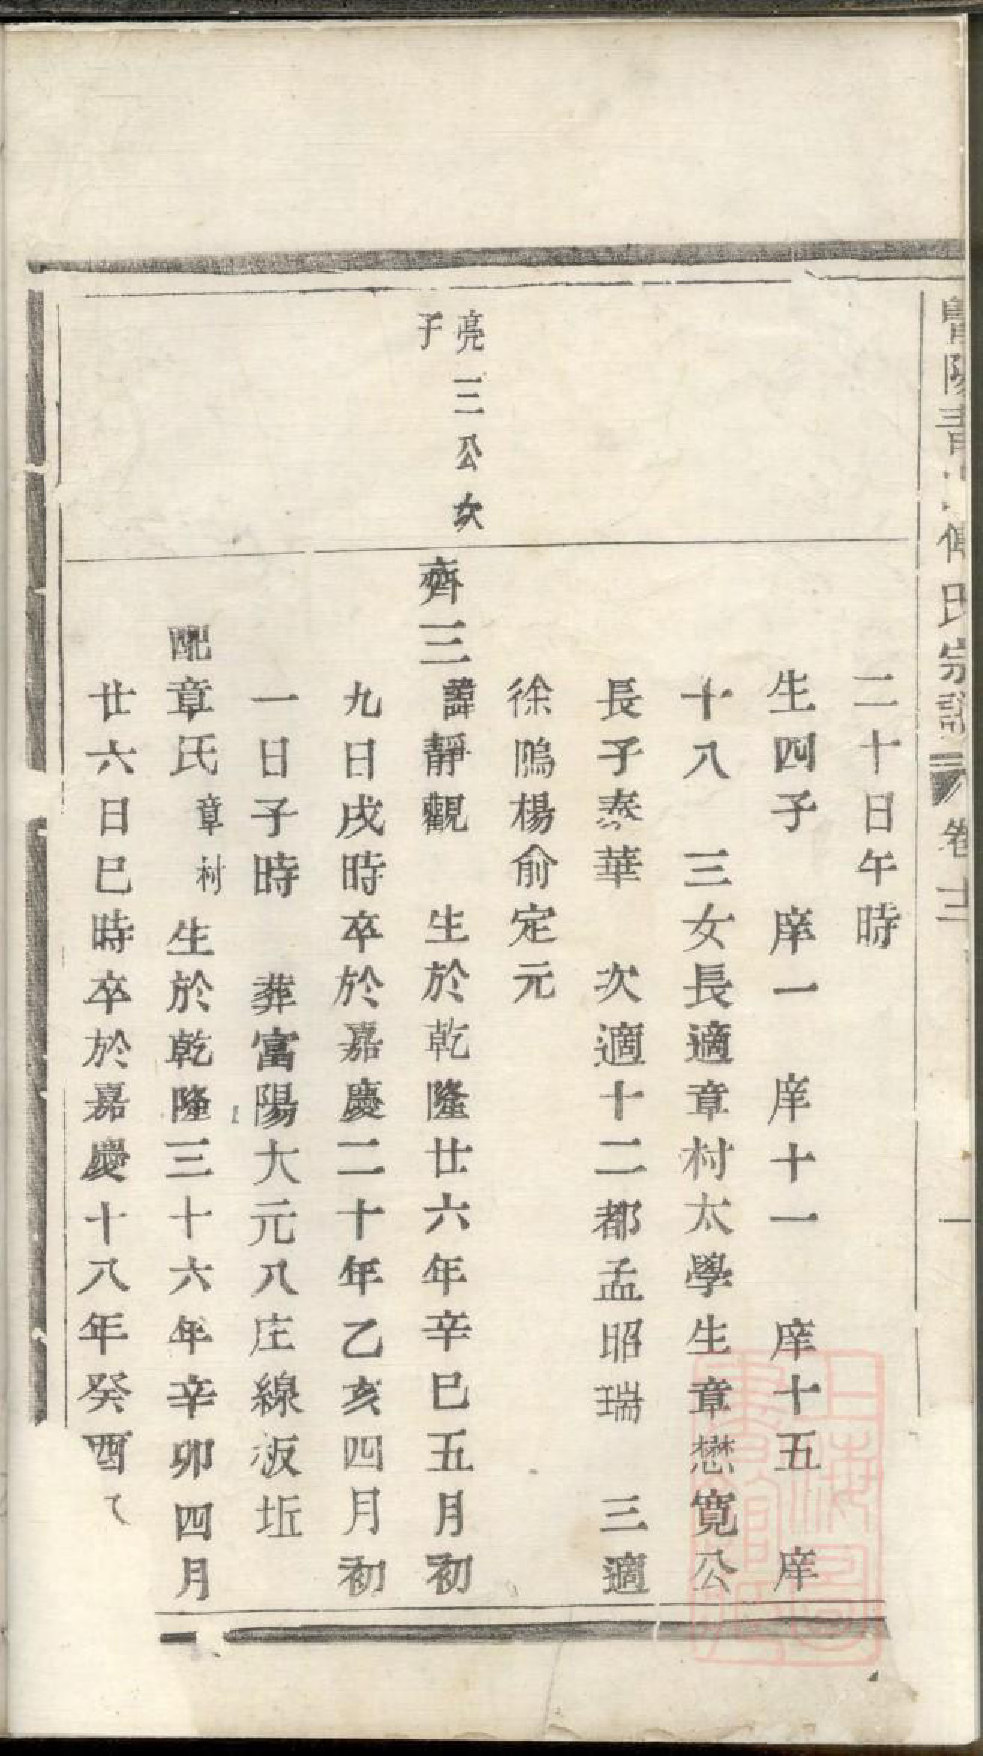 傅氏宗譜 卷十二 一
二十日午時
生四子 庠一 庠十一 庠十五 庠
十八 三女長適章村太學生章懋寬公
長子泰華 次適十二都孟昭瑞 三適
徐鴡楊俞定元
亮三公次
子
齊三諱靜觀 生於乾隆廿六年辛巳五月初
九日戌時卒於嘉慶二十年乙亥四月初
一日子時 葬富陽大元八庄線板坵
配章氏章村生於乾隆三十六年辛卯四月
廿六日巳時卒於嘉慶十八年癸酉